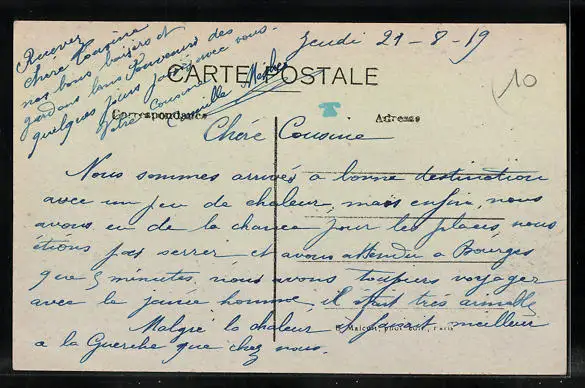 Jeudi 21-8-19
Recevez
chère Cousine
nos bons baisers et
gardons bons souvenirs des
quelques jours passés avec vous.
Votre Cousine
Camille
CARTE POSTALE
10
Correspondance
Adresse
Chère Cousine
Nous sommes arrivés a bonne destination
avec un peu de chaleur, mais enfin, nous
avons eu de la chance pour les places, nous
étions pas serrer et avons attendu a Bourges
que 5 minutes, nous avons toujours voyager
avec le jeune homme, il était très aimable
Malgré la chaleur il faisait meilleur
a la Guerche que chez nous.
Malcuit, phot. édit., Paris